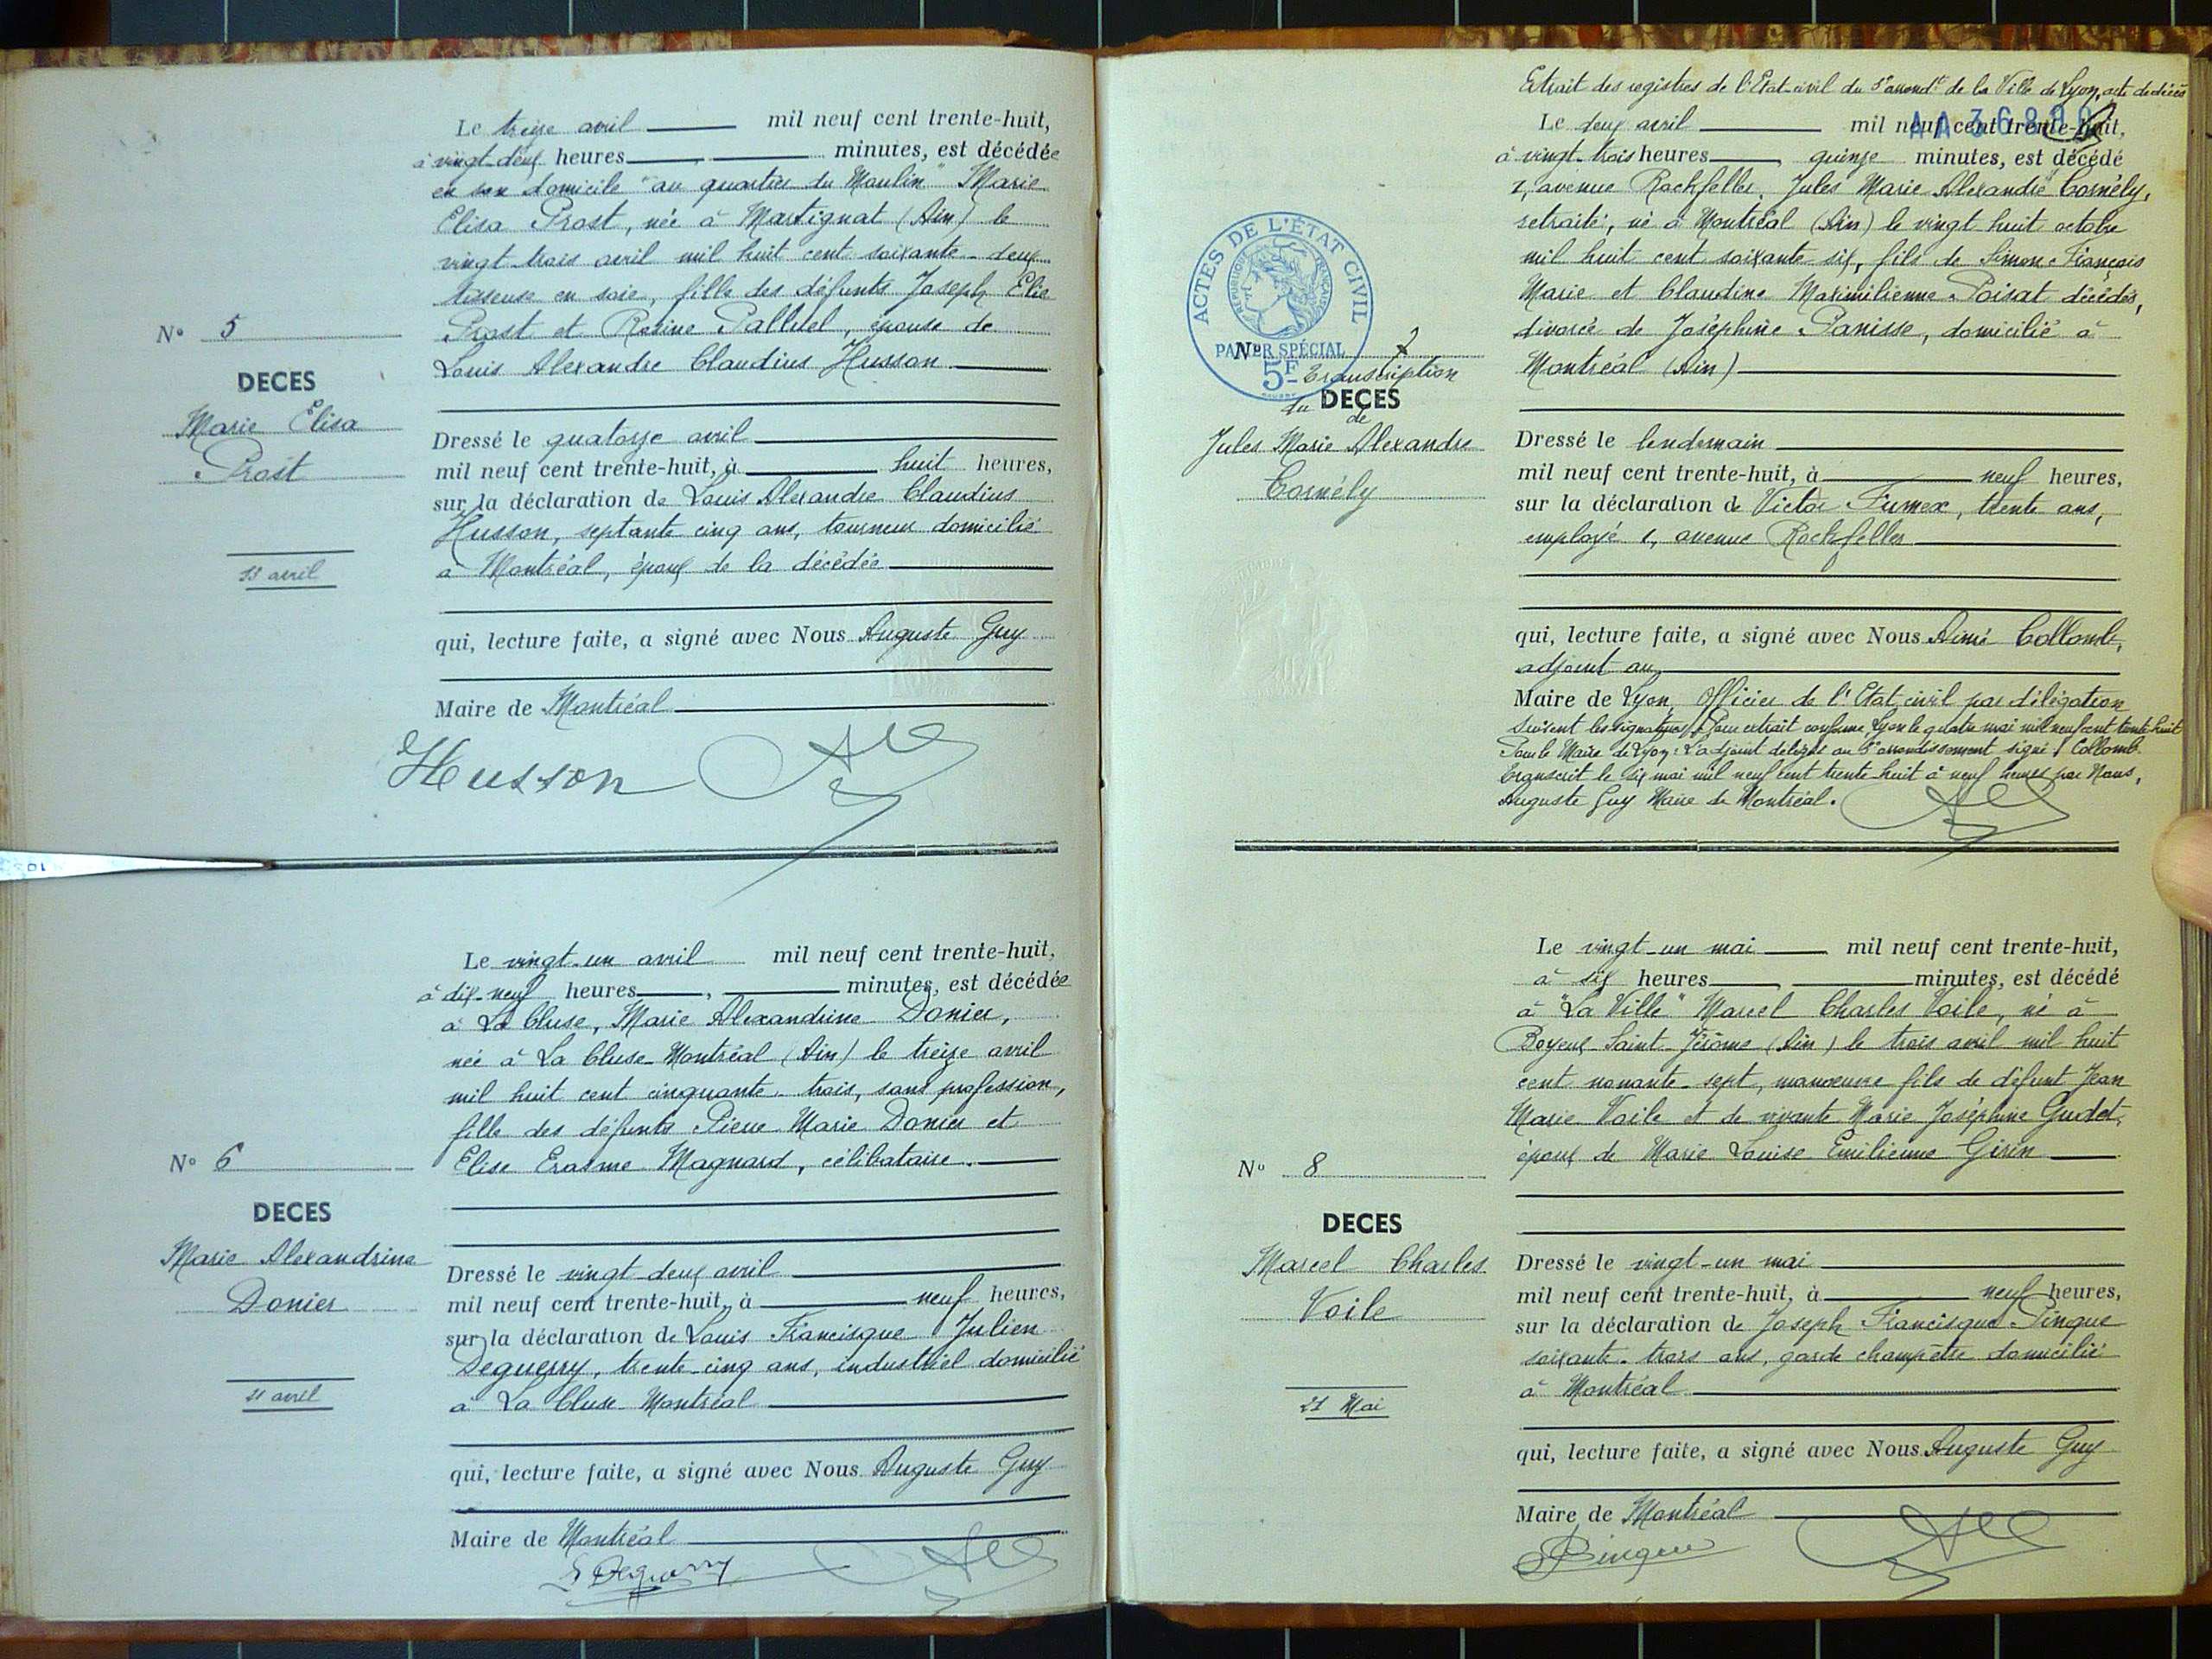 Le treize avril mil neuf cent trente-huit,
à vingt-deux heures, minutes, est décédée
en son domicile "au quartier du Moulin" Marie
Elisa Prost, née à Martignat (Ain) le
vingt trois avril mil huit cent soixante-deux
tisseuse en soie, fille des défunts Joseph Elie
Prost et Rosine Palluel, épouse de
Louis Alexandre Claudius Husson
N° 5
DECES
Marie Elisa
Prost
13 avril
Dressé le quatorze avril
mil neuf cent trente-huit, à huit heures,
sur la déclaration de Louis Alexandre Claudius
Husson, septante cinq ans, tourneur domicilié
à Montréal, époux de la décédée
qui, lecture faite, a signé avec Nous Auguste Guy
Maire de Montréal
Husson
Le vingt-un avril mil neuf cent trente-huit,
à dix-neuf heures, minutes, est décédée
à La Cluse, Marie Alexandrine Donier,
née à La Cluse-Montréal (Ain) le treize avril
mil huit cent cinquante-trois, sans profession,
fille des défunts Pierre Marie Donier et
Elise Erasme Magnard, célibataire.
N° 6
DECES
Marie Alexandrine
Donier
21 avril
Dressé le vingt-deux avril
mil neuf cent trente-huit, à neuf heures,
sur la déclaration de Louis Francisque Julien
Deguerry, trente-cinq ans, industriel domicilié
à La Cluse-Montréal
qui, lecture faite, a signé avec Nous Auguste Guy
Maire de Montréal
Deguerry
Extrait des registres de l'Etat-civil du 3e arrondt de la Ville de Lyon, acte de décès
Le deux avril mil neuf cent trente-huit,
à vingt-trois heures, quinze minutes, est décédé
1, avenue Rockfeller, Jules Marie Alexandre Cornély,
retraité, né à Montréal (Ain) le vingt huit octobre
mil huit cent soixante-six, fils de Simon-François
Marie et Claudine Maximilienne Poisat décédés,
divorcé de Joséphine Panisse, domicilié à
Montréal (Ain)
ACTES DE L'ÉTAT CIVIL
RÉPUBLIQUE FRANÇAISE
PAPIER SPÉCIAL
5F
N° 7
Transcription
du DECES
de
Jules Marie Alexandre
Cornély
Dressé le lendemain
mil neuf cent trente-huit, à neuf heures,
sur la déclaration de Victor Fumex, trente ans,
employé 1, avenue Rockfeller
qui, lecture faite, a signé avec Nous Aimé Collomb,
adjoint au
Maire de Lyon, Officier de l'Etat civil par délégation
Suivent les signatures. Pour extrait conforme Lyon le quatre mai mil neuf cent trente huit
Pour le Maire de Lyon: L'adjoint délégué au 3e arrondissement signé: Collomb.
Transcrit le six mai mil neuf cent trente-huit à neuf heures par Nous,
Auguste Guy Maire de Montréal.
Le vingt-un mai mil neuf cent trente-huit,
à six heures, minutes, est décédé
à "La Ville" Marcel Charles Voile, né à
Boyeux-Saint-Jérôme (Ain) le trois avril mil huit
cent nonante-sept, manœuvre fils de défunt Jean
Marie Voile et de vivante Marie Joséphine Gudet,
époux de Marie Louise Emilienne Girin
N° 8
DECES
Marcel Charles
Voile
21 Mai
Dressé le vingt-un mai
mil neuf cent trente-huit, à neuf heures,
sur la déclaration de Joseph Francisque Pingue
soixante-trois ans, garde champêtre domicilié
à Montréal
qui, lecture faite, a signé avec Nous Auguste Guy
Maire de Montréal
Pingue